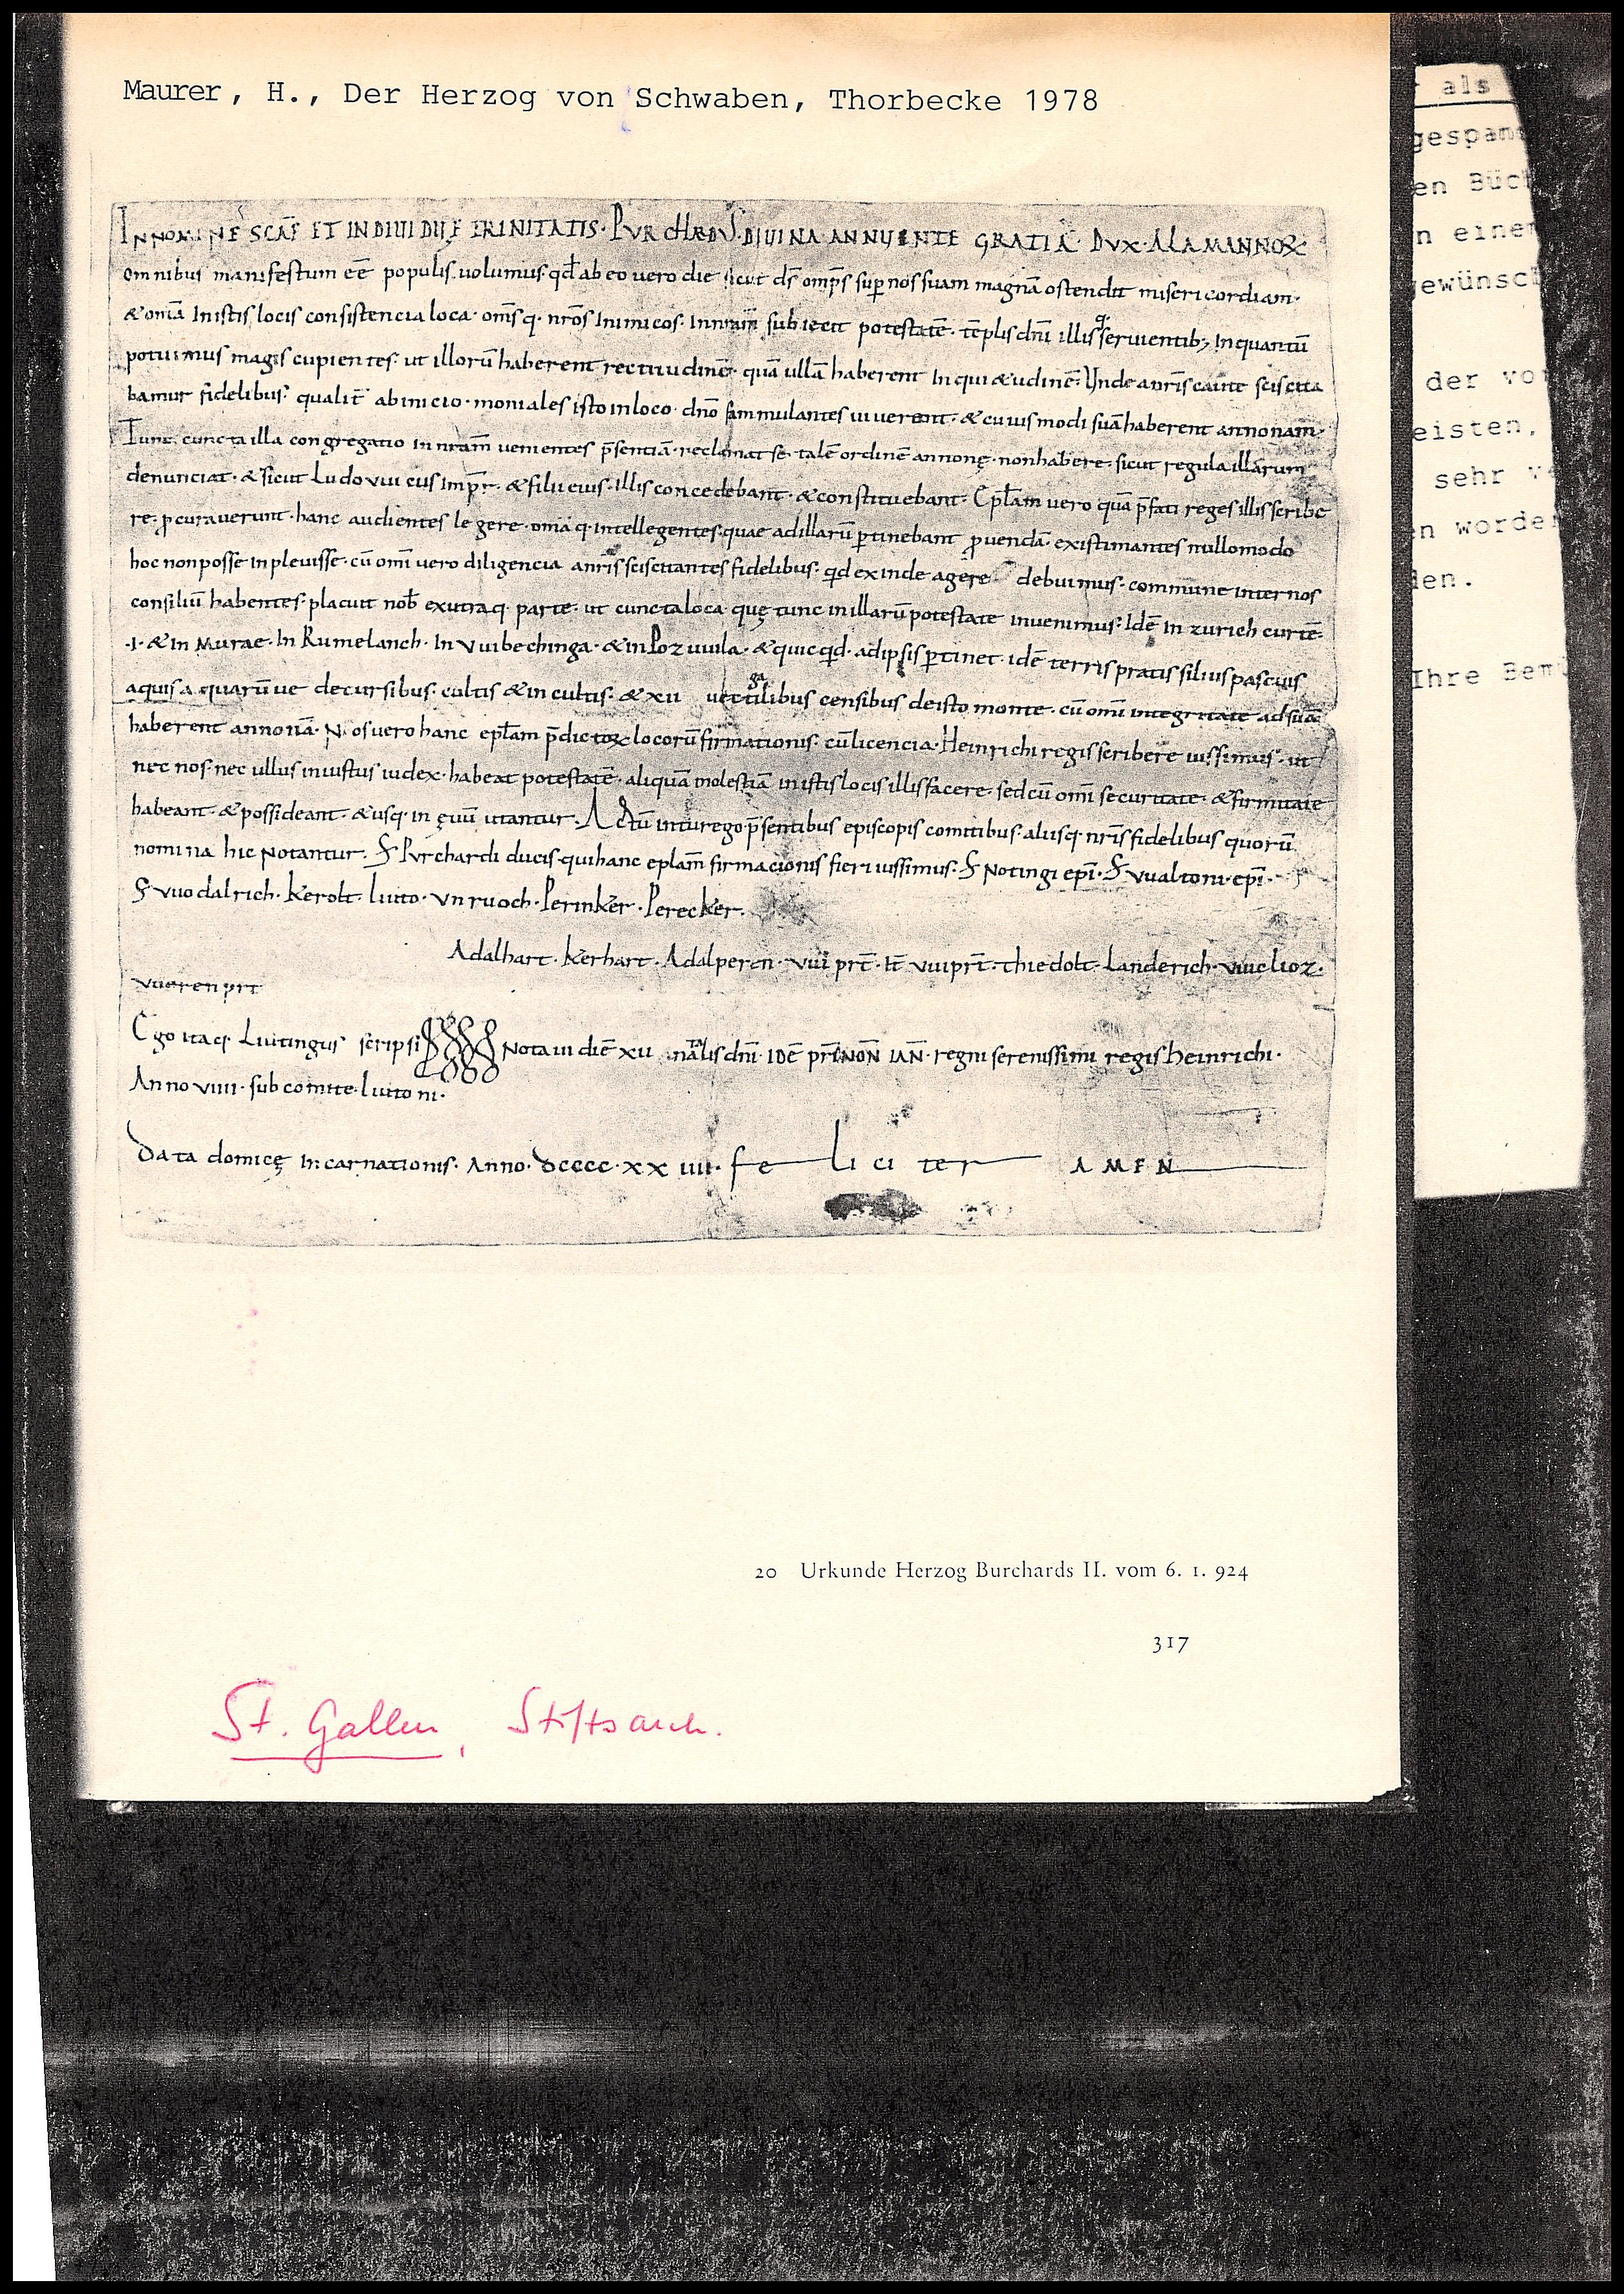 Maurer, H., Der Herzog von Schwaben, Thorbecke 1978
IN NOMINE SCAE ET INDIUIDUE TRINITATIS · PURCHARDUS · DIUINA ANNUENTE GRATIA · DUX · ALAMANNOR
omnibus manifestum eē populis uolumus · qđ ab eo uero die sicut dš omp̄s sup nos suam magnā ostendit misericordiam ·
& omīa In istis locis consistencia loca · om̄s q · nr̄os Inimicos · In nrām subiecit potestatē · tēplis dn̄i illisq seruientib; In quantū
potuimus magis cupientes · ut illorū haberent rectitudinē · quā ullā haberent Iniqui&udinē · Unde a nr̄is caute sciscita
bamur fidelibus · qualit̄ ab inicio · moniales isto in loco · dn̄o fammulantes uiuerent · & cuius modi suā haberent annonam ·
Tunc cuncta illa congregatio in nrām uenientes p̄sentiā · reclamat se talē ordinē annonę · non habere · sicut regula illarum
denunciat · & sicut Ludouuicus imp̄r · & filii eius · illis concedebant · & constituebant · Ep̄lam uero quā p̄fati reges illis scribe
re · p curauerunt · hanc audientes legere · omīa q · intellegentes · quae ad illarū ptinebant puendā · existimantes nullo modo
hoc non posse inpleuisse · cū omī uero diligencia a nr̄is sciscitantes fidelibus · qd exinde agere debuimus · commune inter nos
consiliū habentes · placuit nob̄ ex utraq · parte · ut cuncta loca quę tunc in illarū potestate inuenimus · Idē in zurich curtē ·
· I · & In Murae · In Rumelanch · In Vuibechinga · & in Pozuuila · & quicqd · ad ipsis ptinet · idē terris pratis siluis pascuis
aquis aquarū ue decursibus · cultis & incultis · & XII uectigalibus censibus de isto monte · cū omī integritate ad suā
haberent annonā · Nos uero hanc ep̄lam p̄dictor locorū firmationis · cū licencia · Heinrichi regis scribere iussimus · ut
nec nos · nec ullus iniustus iudex · habeat potestatē · aliquā molestiā in istis locis illis facere · sed cū omī securitate · & firmitate
habeant · & possideant · & usq · in ęuū utantur · Actū in turego · p̄sentibus episcopis comitibus · aliisq · nr̄is fidelibus quorū
nomina hic Notantur · S Purchardi ducis · qui hanc eplam̄ firmacionis fieri iussimus · S Notingi ep̄i · S uualtoni · ep̄i ·
S uuodalrich · Kerolt · liuto · Vnruoch · Perinker · Perecker ·
Adalhart · Kerhart · Adalpern · Vuiprt̄ · It̄ Vuiprt̄ · Thiedolt · Landerich · Vuielioz ·
Vuerenprt
Ego itaq · Liutingus scripsi Notaui diē XII natalis dn̄i · IDĒ prīNOÑ IAÑ · regni serenissimi regis heinrichi ·
Anno VIIII · sub comite · liutoni ·
Data domicę incarnationis · Anno · DCCCC · XX IIII · feliciter AMEN
20 Urkunde Herzog Burchards II. vom 6. 1. 924
317
St. Gallen, Stiftsarch.
als
en Büch
n einem
der vo
eisten,
sehr
worden
den.
Ihre